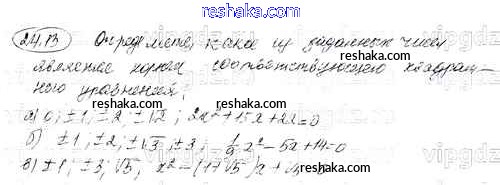 reshak.ru
24.13 Определите, какое из заданных чисел
является корнем соответствующего квадрат-
ного уравнения:
reshak.ru
а) 0; ±1; ±2; ±√2; 2x² + 15x + 22 = 0
б) ±1; ±2; ±√3; ±3; x² - 5x + 14 = 0
в) ±1; ±3; √5; x² - (1+√5)x +
reshak.ru